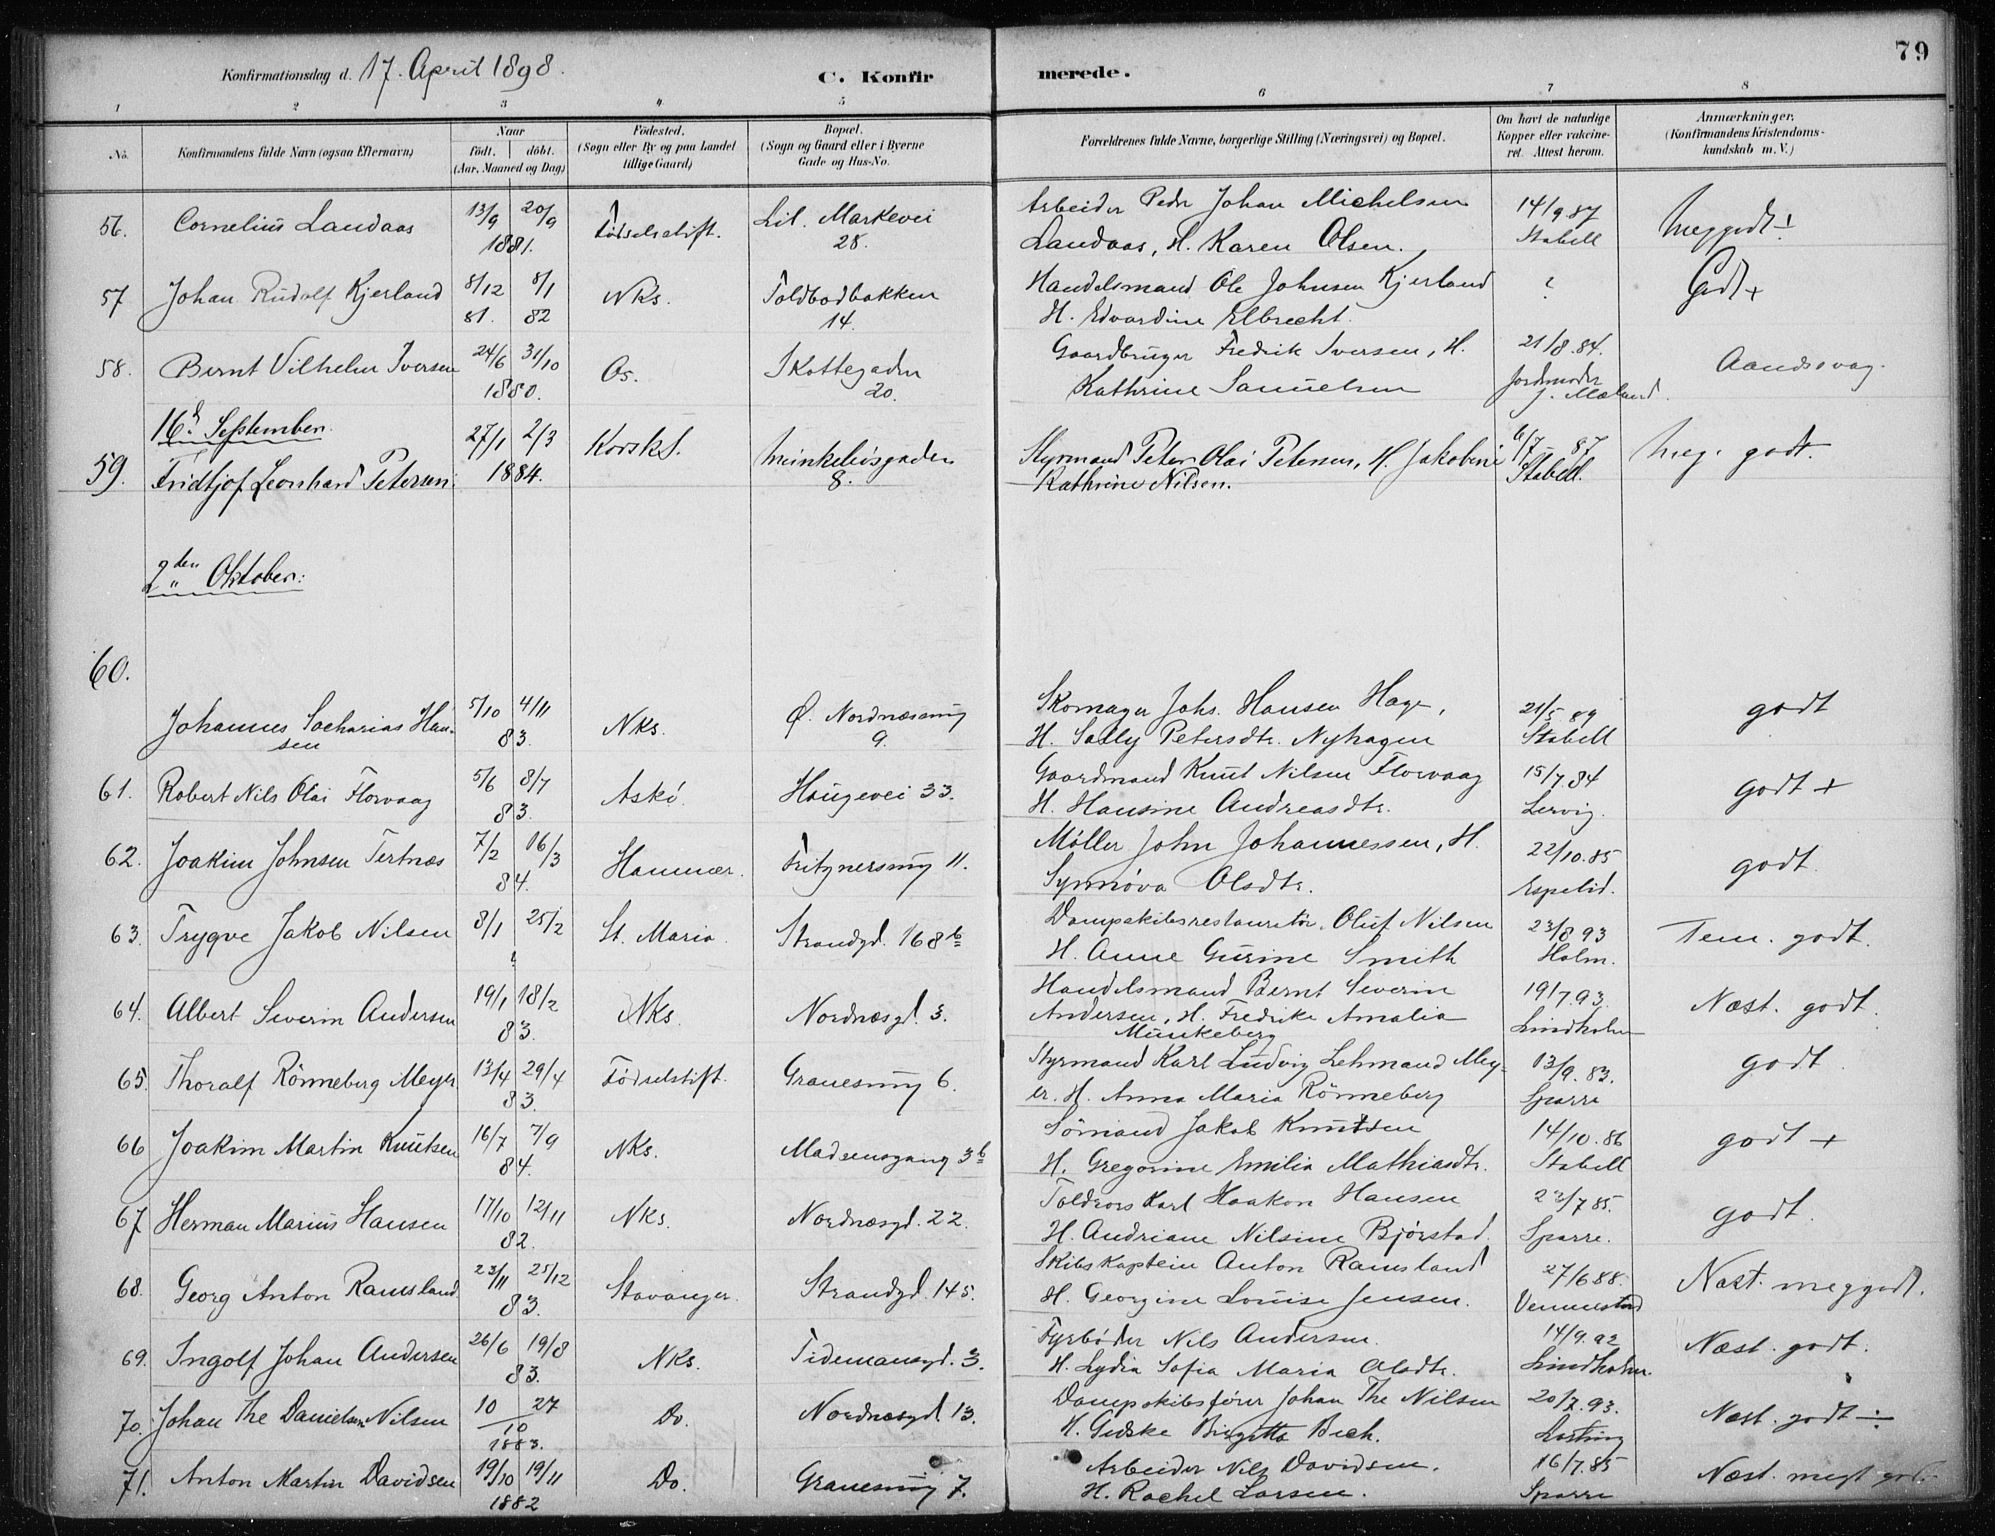 79
Konfirmationsdag d. 17. April 1898.
C. Konfirmerede.
1 2 3 4 5 6 7 8
No. Konfirmandens fulde Navn (ogsaa Efternavn) Naar födt. döbt. (Aar, Maaned og Dag) Födested. (Sogn eller By og paa Landet tillige Gaard.) Bopæl. (Sogn og Gaard eller i Byerne Gade og Hus-No. Forældrenes fulde Navne, borgerlige Stilling (Næringsvei) og Bopæl. Om havt de naturlige Kopper eller vakcineret. Attest herom. Anmærkninger. (Konfirmandens Kristendomskundskab m. V.)
56. Cornelius Landaas 13/9 20/9 1881. Födselsstift. Lil. Markevei 28. Arbeider Peder Johan Michelsen Landaas, H. Karen Olsen. 14/9 87 Stabell Meg godt !
57 Johan Rudolf Kjerland 8/12 81. 8/1 82 Nks. Toldbodbakken 14. Handelsmand Ole Johnsen Kjerland H. Edvardine Elbrecht. ? Godt +
58. Bernt Vilhelm Iversen 24/6 31/10 1880. Os. Skottegaden 20. Gaardbruger Fredrik Iversen, H. Kathrine Samuelsen 21/8.84. Jordmoder J. Mæland. Aandssvag.
16d September.
59. Fridtjof Leonhard Petersen. 27/1 2/3 1884. KorskS. Meinkehisgaden 8. Styrmand Peter Olai Petersen, H. Jakobine Kathrine Nilsen. 6/7 87 Stabell. Meg. godt.
2den Oktober:
60. Johannes Sacharias Hansen 5/10 4/11 83. Nks. Ø. Nordnæssmug 9. Skomager Johs. Hansen Hage, H. Sally Petersdtr. Nyhagen 21/5 89 Stabell godt
61. Robert Nils Olai Florvaag 5/6 8/7 83. Askö. Haugevei 33. Gaardmand Knut Nilsen Florvaag H. Hansine Andreasdtr. 15/7.84 Lervig. godt +
62. Joakim Johnsen Tertnæs 7/2 16/3 84. Hammer. Fritznersmug 11. Møller John Johannessen, H. Synnøva Olsdtr. 22/10.85 Espelid. godt.
63. Trygve Jakob Nilsen 8/1 25/2 ? St. Maria. Strandgd. 168 b Dampskibsrestauratör Oluf Nilsen H. Anne Gurine Smith 23/8 93 Holm. Tem. godt.
64. Albert Severin Andersen 19/1 18/2 83. Nks. Nordnæsgd. 3. Handelsmand Bernt Severin Andersen, H. Fredrike Amalia Munkeberg 19/7.93. Lindholm Næst. godt.
65. Thoralf Rönneberg Meyer 13/4 29/4 83. Födselstift. Granesmug 6. Styrmand Karl Ludvig Lehmand Meyer. H. Anna Maria Rönneberg 13/9.83. Sparre godt.
66 Joakim Martin Knutsen 16/7 7/9 84. Nks. Madsensgang 3 b Sömand Jakob Knutsen H. Gregorine Emilia Mathiasdtr. 14/10.86 Stabell godt +
67 Herman Marius Hansen 17/10 12/11 82. Nks. Nordnæsgd. 22. Toldrors Karl Haakon Hansen H. Andriane Nilsine Bjørstad. 23/7 85. Sparre. godt.
68. Georg Anton Ramsland 23/11 25/12 83. Stavanger. Strandgd. 145. Skibskaptein Anton Ramsland H. Georgine Louise Jensen. 27/6 88. Vennestad Næst. meg godt.
69. Ingolf Johan Andersen 26/6 19/8 83. Nks. Tidemansgd. 3. Fyrbøder Nils Andersen. H. Lydia Sofia Maria Olsdtr. 14/9.92 Lindholm Næst. godt.
70. Johan The Danielsen Nilsen 10 27 10 1883. Do. Nordnæsgd 13. Dampskibsfører Johan The Nilsen H. Gidske Birgitta Bech. 20/7.93. Næst. godt ÷
71. Anton Martin Davidsen 19/10 19/11 1882 Do. Granesmug 7. Arbeider Nils Davidsen. H. Rachel Larsen. 16/7.85 Sparre Næst. megt godt.